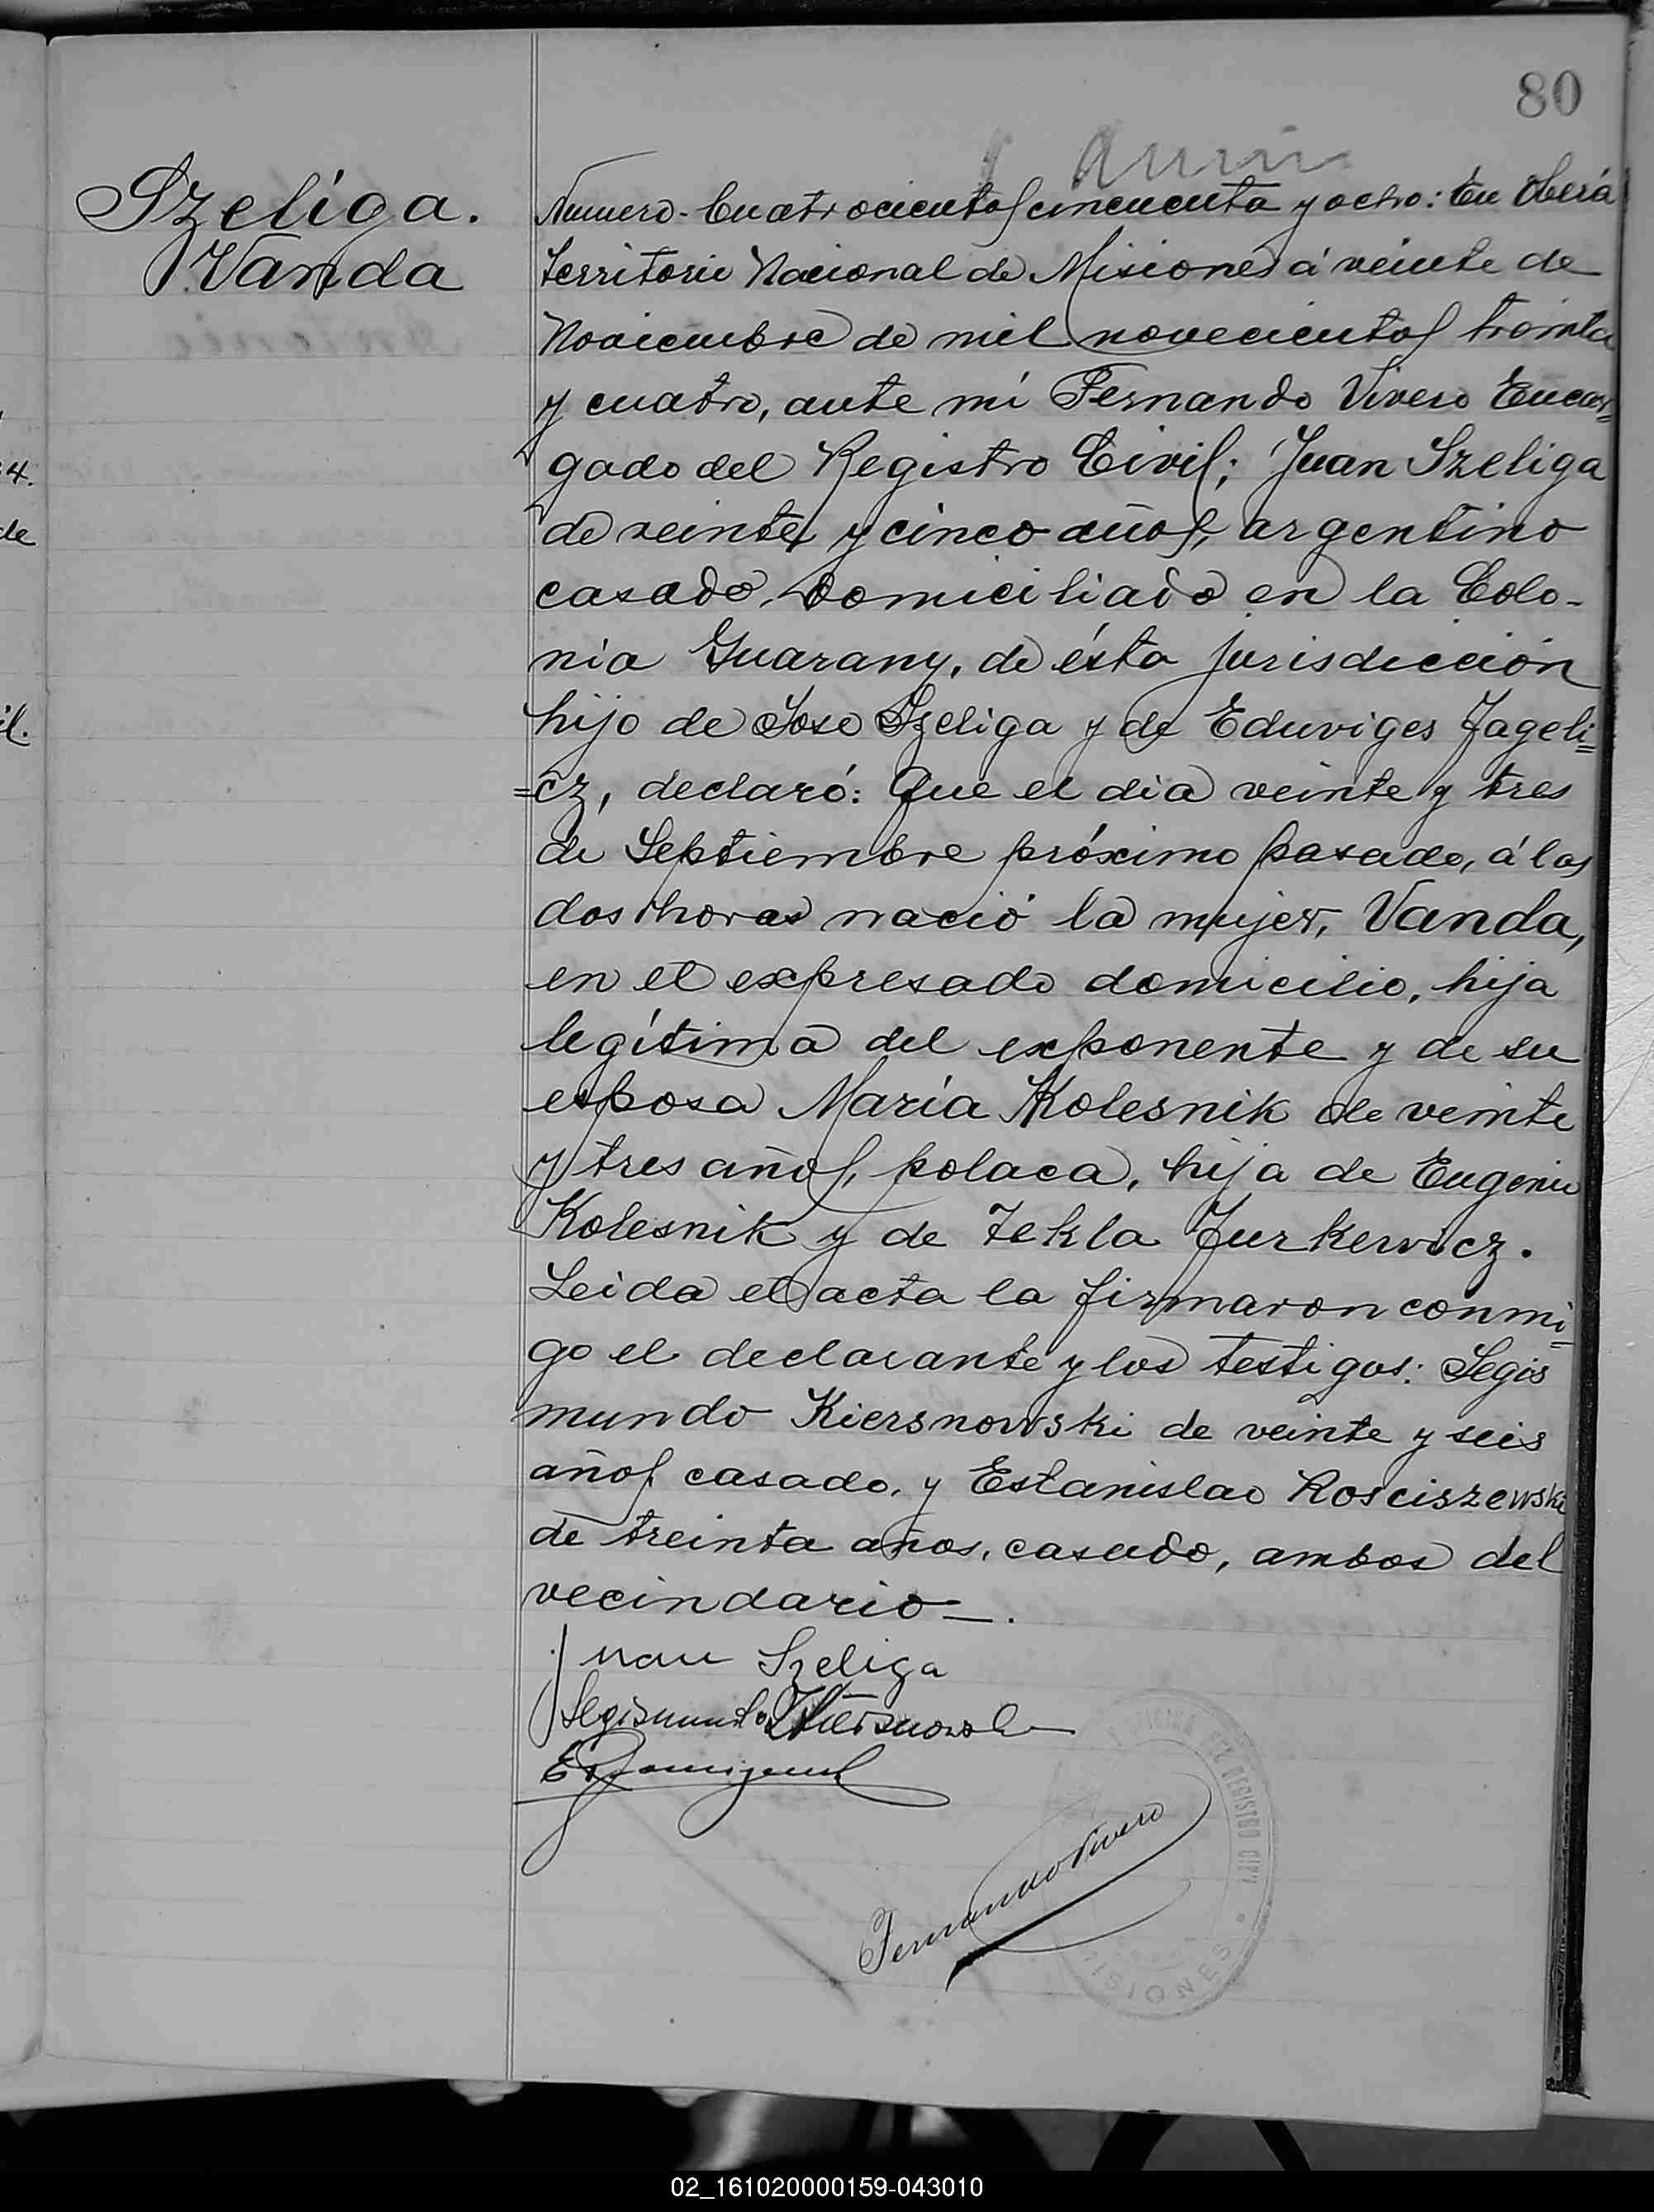 80
Szeliga.
Vanda
Numero. Cuatrocientos cincuenta y ocho: En Oberá
Territorio Nacional de Misiones á veinte de
Noviembre de mil novecientos treinta
y cuatro, ante mí Fernando Vivero Encar=
gado del Registro Civil; Juan Szeliga
de veinte y cinco años, argentino
casado, domiciliado en la Colo-
nia Guarany, de ésta jurisdicción
hijo de Jose Szeliga y de Eduviges Jageli=
=cz, declaró: Que el dia veinte y tres
de Septiembre próximo pasado, á las
dos horas nació la mujer, Vanda,
en el expresado domicilio, hija
legítima del exponente y de su
esposa María Kolesnik de veinte
y tres años, polaca, hija de Eugenio
Kolesnik y de Tekla Jurkewicz.
Leida el acta la firmaron conmi=
go el declarante y los testigos: Segis
mundo Kiersnowski de veinte y seis
años casado, y Estanislao Rosciszewski
de treinta años, casado, ambos del
vecindario—.
Juan Szeliga
Segismundo Kiersnowski
Fernando Vivero
OFICINA DEL REGISTRO CIVIL
MISIONES
4.
de
il.
02_161020000159-043010